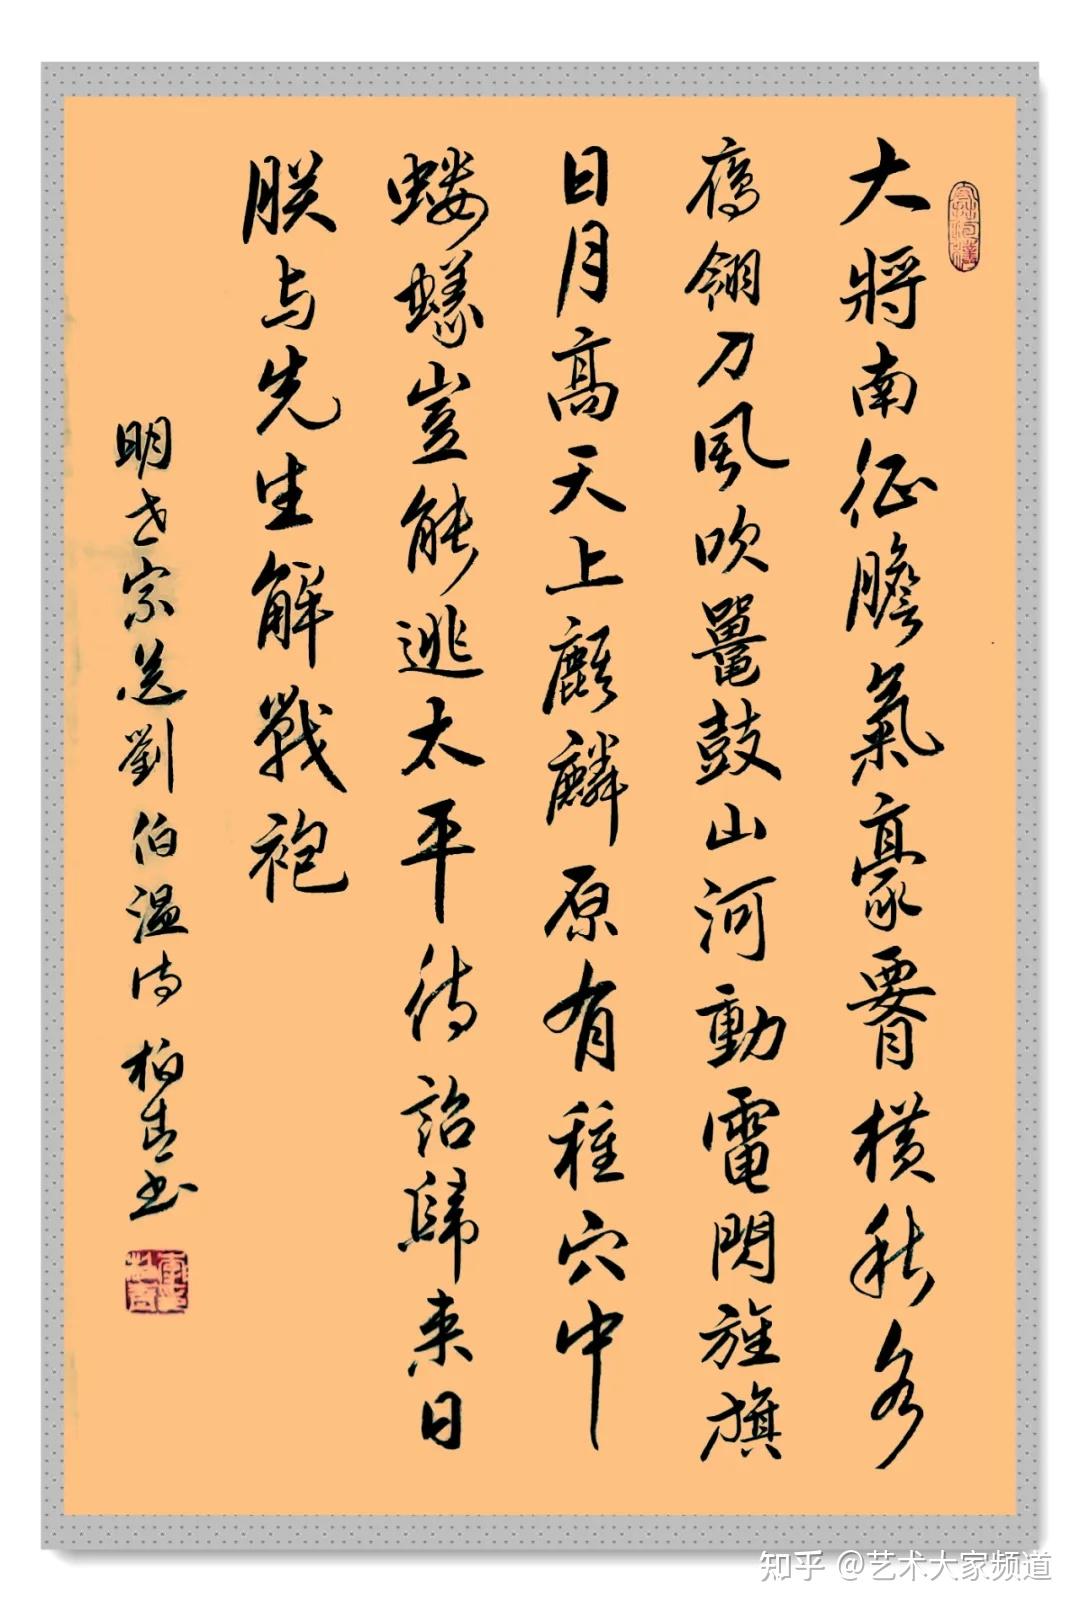 大將南征膽氣豪腰橫秋水
鴈翎刀風吹鼉鼓山河動電閃旌旗
日月高天上麒麟原有種穴中
螻蟻豈能逃太平待詔歸来日
朕与先生解戰袍
明世宗送劉伯温诗 柏书
知乎 @艺术大家频道